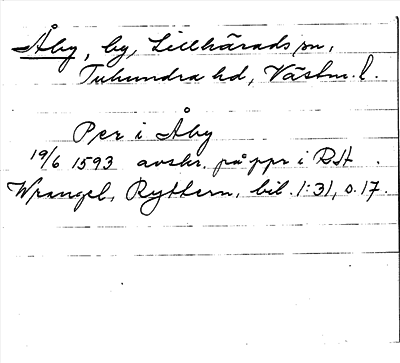 Åby, by, Lillhärads sn,
Tuhundra hd, Västm. l.
Per i Åby
19/6 1593 avskr. på ppr i RHA.
Wrangel, Ryttern, bil. 1:31, s. 17.